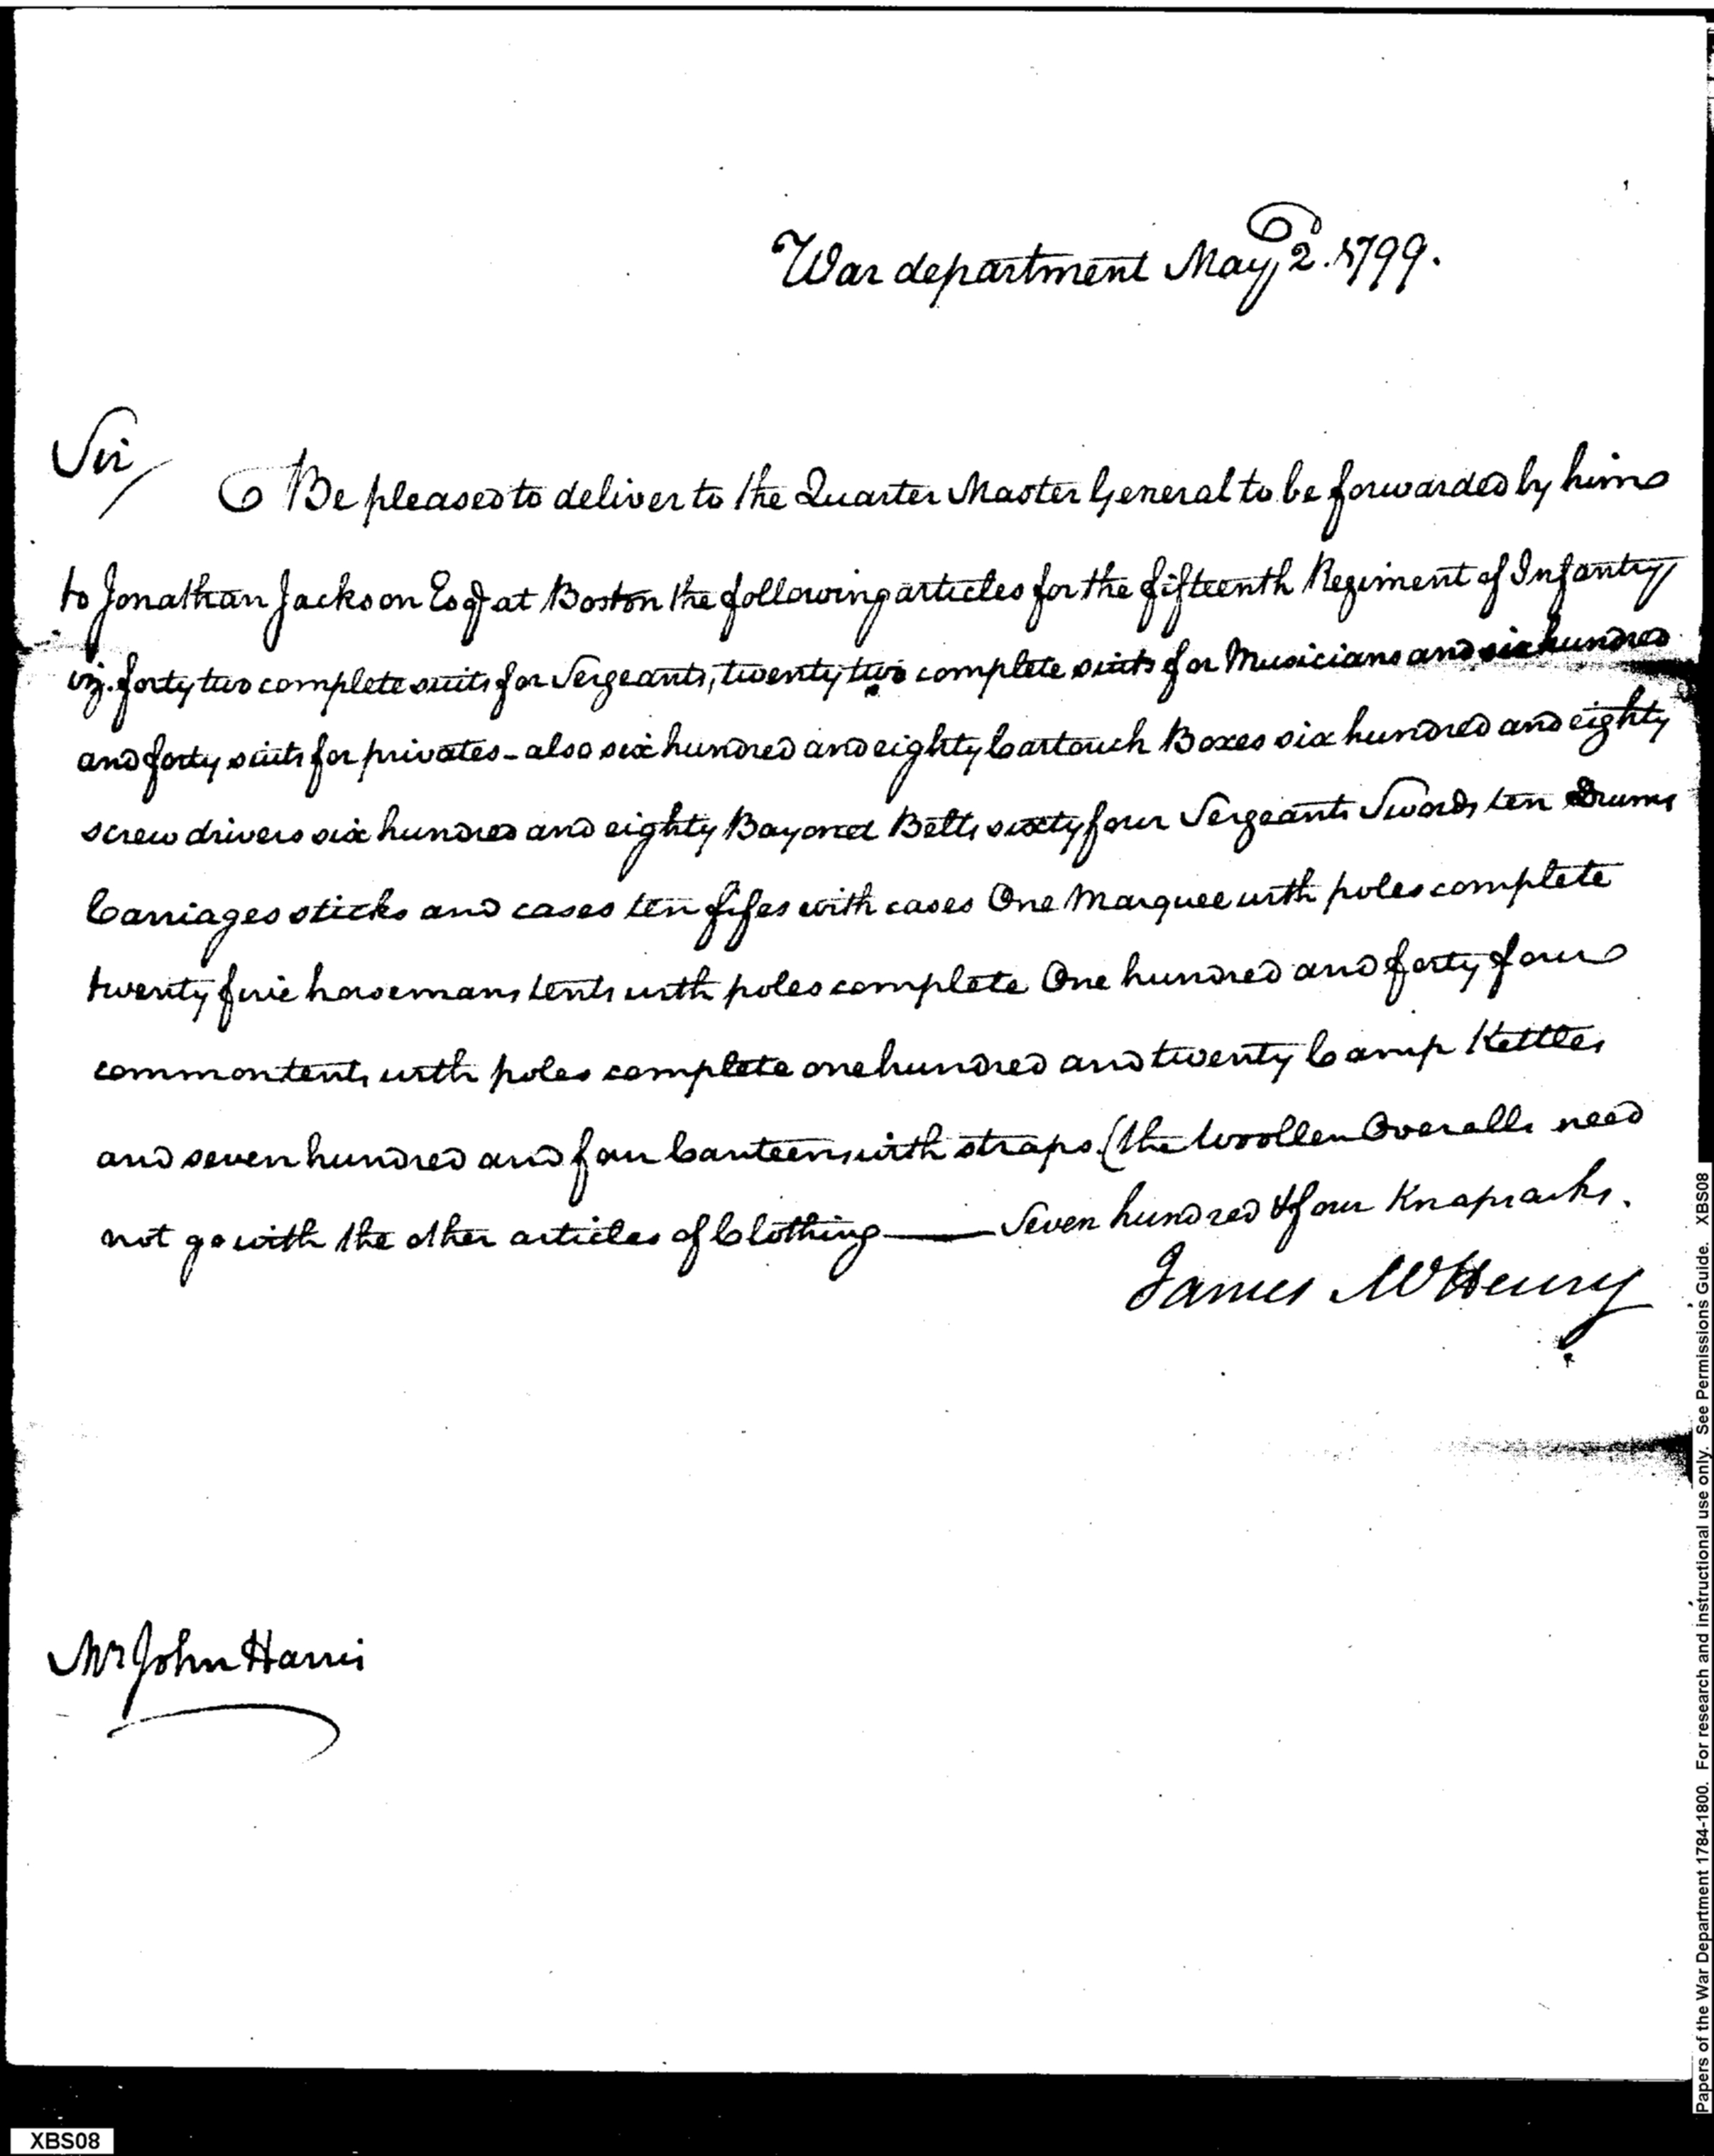 War department May 2d. 1799.
Sir/
Be pleased to deliver to the Quarter Master General to be forwarded by him
to Jonathan Jackson Esqr at Boston the following articles for the fifteenth Regiment of Infantry
viz. forty two complete suits for Sergeants, twenty two complete suits for Musicians and six hundred
and forty suits for privates - also six hundred and eighty Cartouch Boxes six hundred and eighty
screw drivers six hundred and eighty Bayonet Belts sixty four Sergeants Swords ten Drums
Carriages sticks and cases ten fifes with cases One Marquee with poles complete
twenty five horsemans tents with poles complete One hundred and forty four
common tents with poles complete one hundred and twenty Camp Kettles
and seven hundred and four Canteens with straps. (the Woollen Overalls need
not go with the other articles of Clothing — Seven hundred & four Knapsacks.
James McHenry
Mr John Harris
Papers of the War Department 1784-1800. For research and instructional use only. See Permissions Guide. XBS08
XBS08